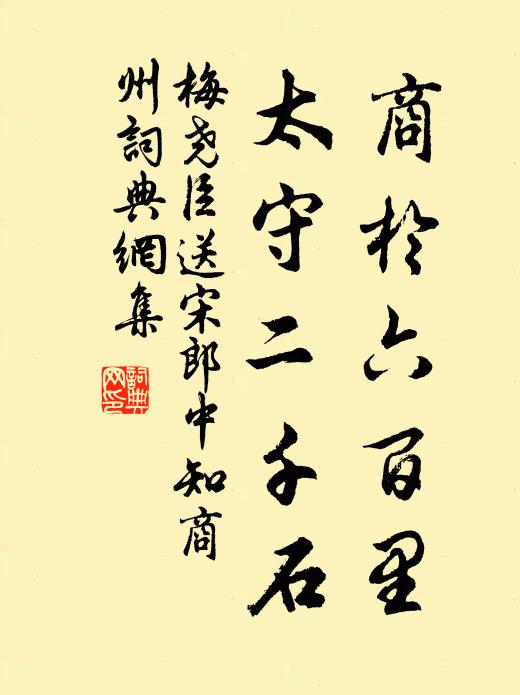 商於六百里
太守二千石
梅尧臣送宋郎中知商
州詞典網集
詞典
网印